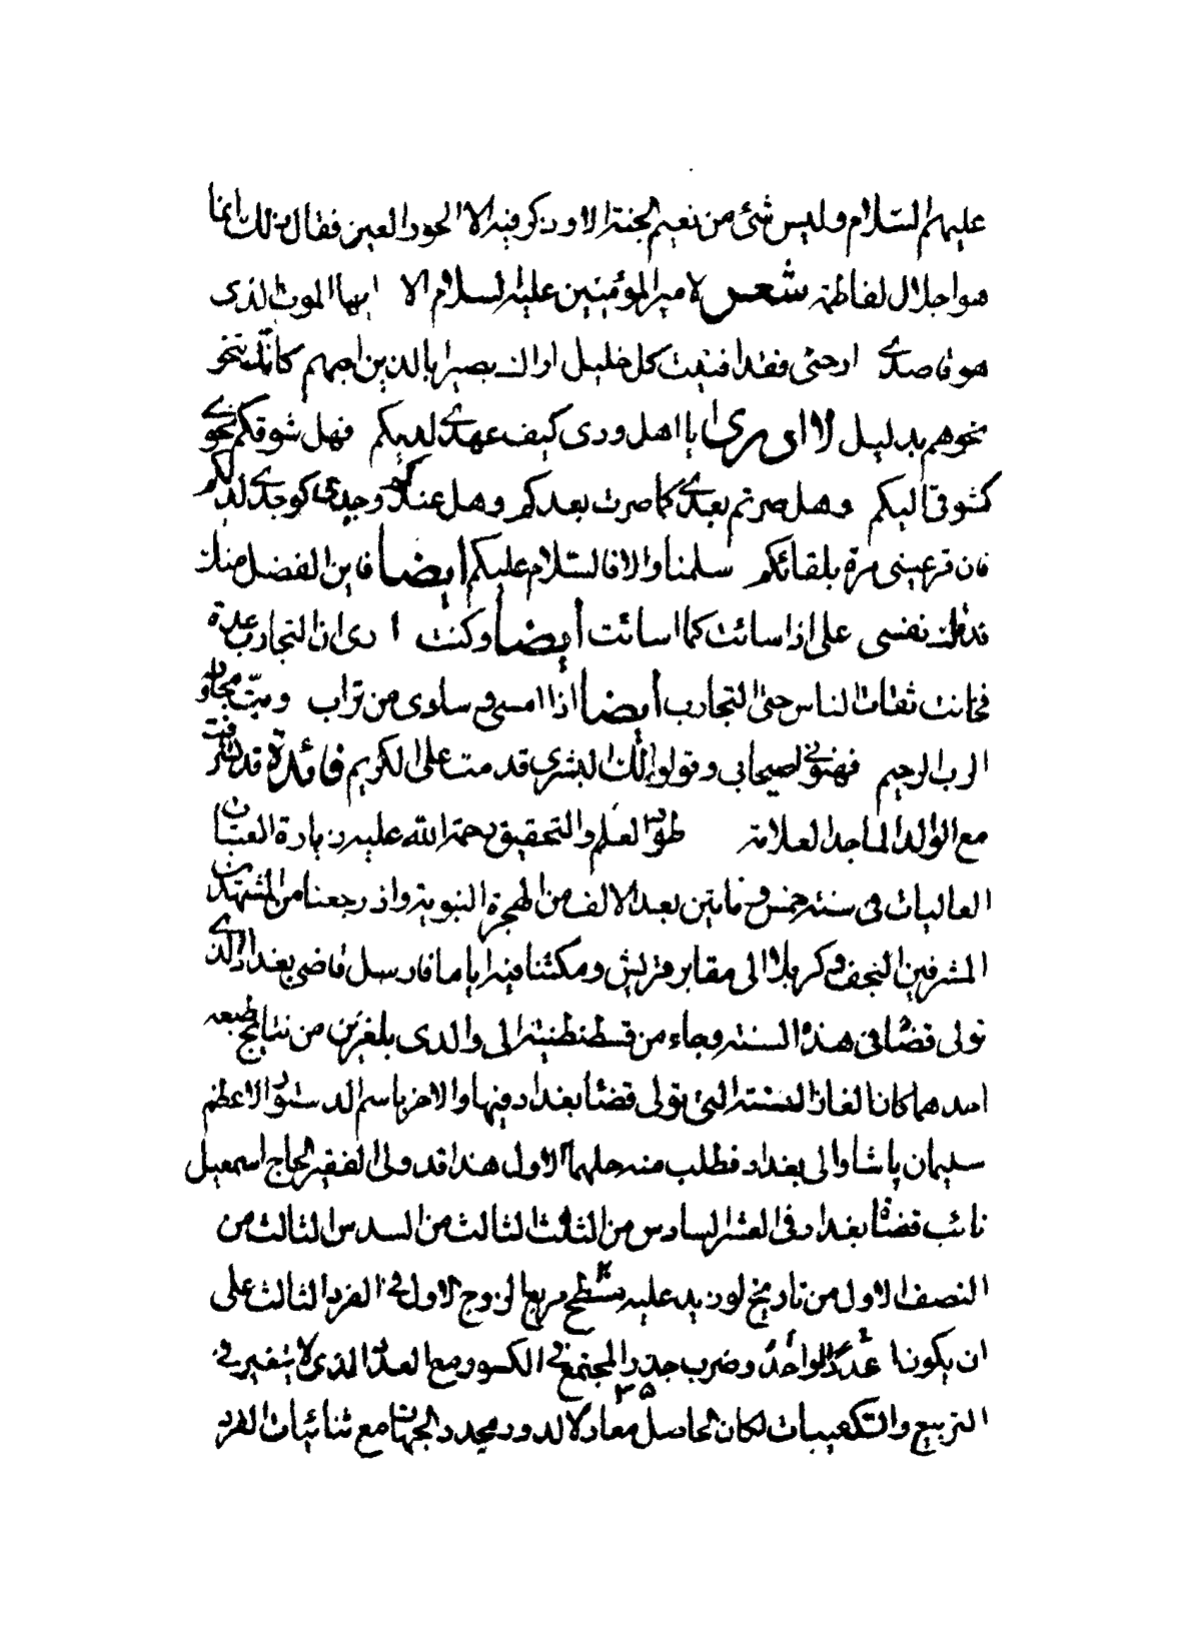 عليهم السلام وليس شئ من نعيم الجنة الا وذكر فيه الا الحور العين فقال ذلك انما
هو اجلال لفاطمة شعر لامير المؤمنين عليه السلام الا ايها الموت الذى
هو قاصدي ارحنى فقد افنيت كل خليل اراك بصيرا بالذين احبهم كانك تنحو
نحوهم بدليل لا ادرى يا اهل ودى كيف عهدي لديكم فهل شوقكم نحوي
كشوقى اليكم وهل صرتم بعدي كما صرت بعدكم وهل عندكم وجدى كوجدي لديكم
فان قر عينى مرة بلقائكم سلمنا والا فالسلام عليكم ايضا فاين الفضل منك
فدتك نفسى على اذا سائت كما اسائت أيضا وكنت ا رى ان التجارب عدة
فخانت ثقات الناس حتى التجارب أيضا اذا امسى وسادى من تراب وبتّ مجاور
الرب الرحيم فهنونى اصيحابى وقولوا لك البشرى قدمت على الكريم فائدة قد تشرفت
مع الوالد الماجد العلامة طود العلم والتحقيق رحمة الله عليه بزيارة العتبات
العاليات فى سنة خمس و مايتين بعد الالف من الهجرة النبوية واذ رجعنا من المشهدين
المشرفين النجف وكربلا الى مقابر قريش ومكثنا فيه اياما فارسل قاضى بغداد الذي
تولى قضاء فى هذه السنة وجاء من قسطنطنية الى والدى بلغزين من نتايج طبعه
احدهما كان الغاز السنة التى تولى قضاء بغداد فيها والاخر باسم الدستور الاعظم
سليمان پاشا والى بغداد فطلب منه حلهما الاول هذا قد ولى الفقير الحاج اسمعيل
نائب قضاء بغداد فى العشر السادس من الثلث الثالث من السدس الثالث من
النصف الاول من تاريخ لو زيد عليه مسطح مربع الزوج الاول فى الفرد الثالث على
ان يكونا عددا لواحد وضرب جذر المجتمع فى الكسور مع العدد الذى لا يتغير فى
٢٥
التربيع والتكعيبات لكان الحاصل معادلا لدور محدد الجهات مع ثنائيات الفرد